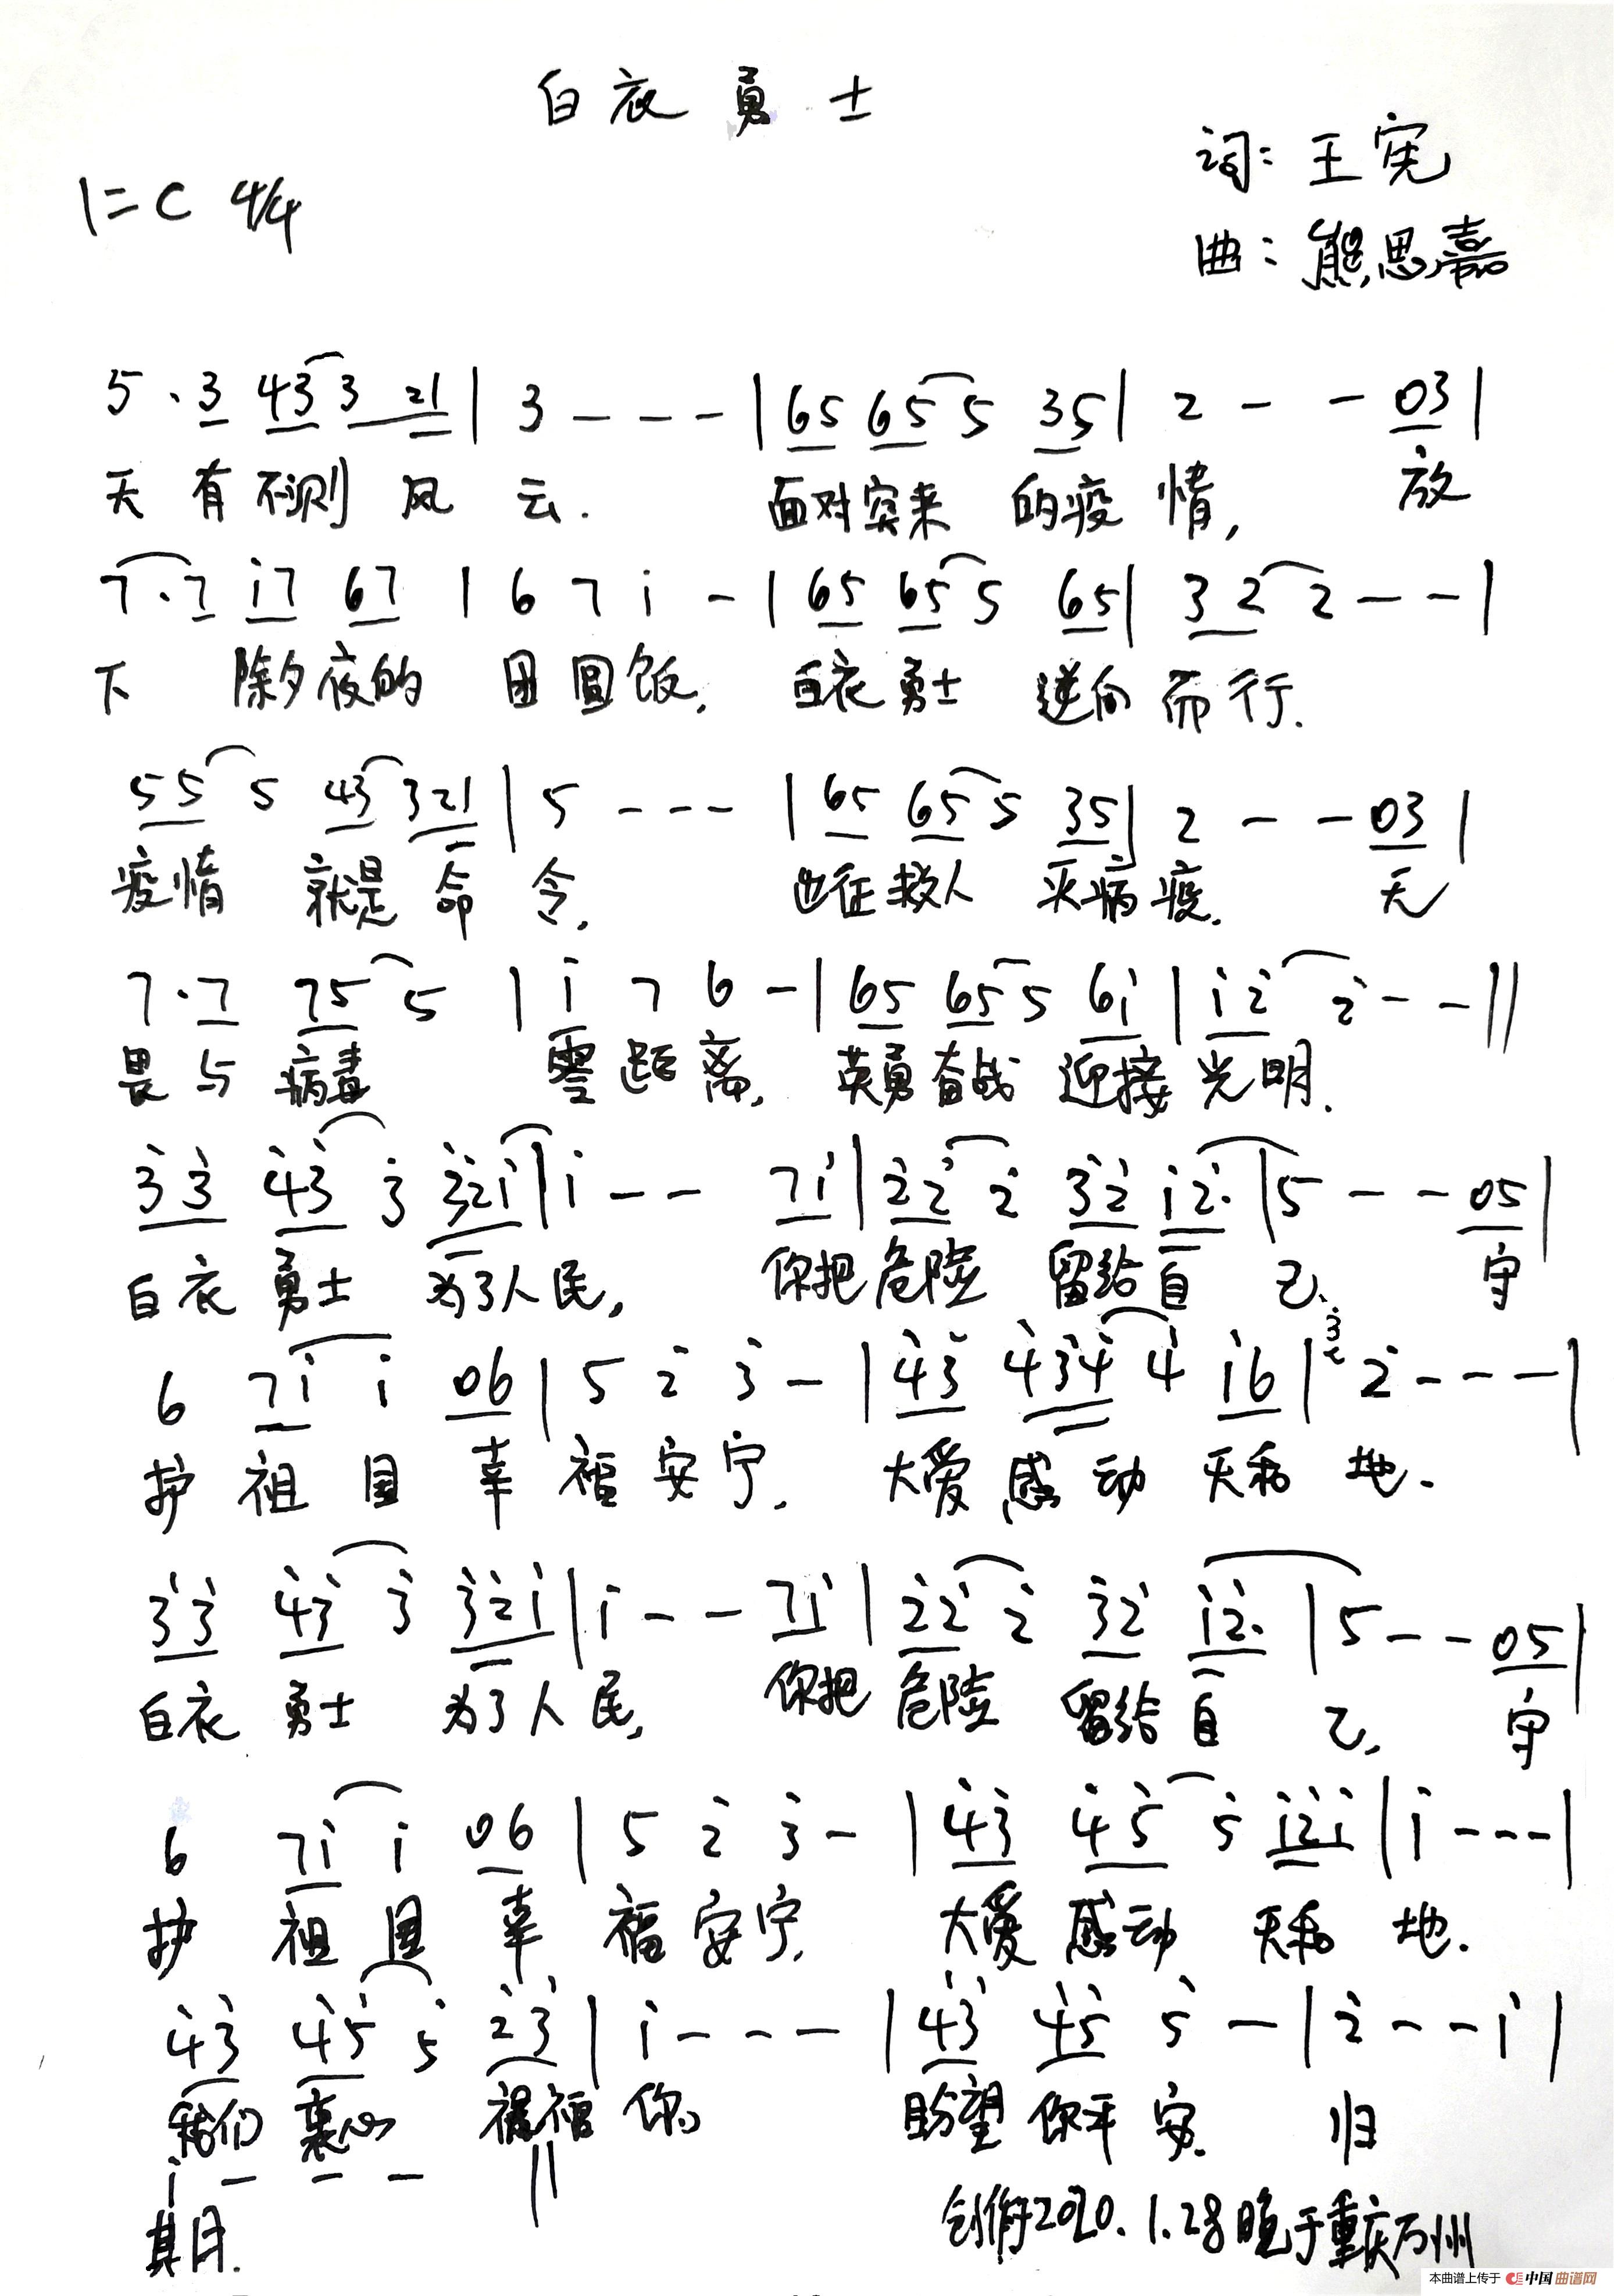 白衣勇士
词：王宪
1=C 4/4
曲：熊思嘉
5 . 3 43 3 21 | 3 - - - | 65 65 5 35 | 2 - - 03 |
天有不测风云. 面对突来的疫情, 放
7 . 7 i7 67 | 6 7 i - | 65 65 5 65 | 3 2 2 - - |
下 除夕夜的 团圆饭, 白衣勇士 逆向而行.
55 5 43 321 | 5 - - - | 65 65 5 35 | 2 - - 03 |
疫情 就是命令, 出征救人 灭病疫. 无
7 . 7 75 5 | i 7 6 - | 65 65 5 6i | i 2̇ 2̇ - - ||
畏与病毒 零距离, 英勇奋战 迎接光明.
3̇3̇ 4̇3̇ 3̇ 3̇2̇i | i - - 7i | 2̇2̇ 2̇ 3̇2̇ i2̇. | 5 - - 05 |
白衣勇士 为了人民, 你把危险 留给自己、 守
6 7i i 06 | 5 2̇ 3̇ - | 4̇3̇ 4̇3̇4̇ 4̇ i6 | 3̇ 2̇ - - - |
护祖国幸福安宁. 大爱感动天和地.
3̇3̇ 4̇3̇ 3̇ 3̇2̇i | i - - 7i | 2̇2̇ 2̇ 3̇2̇ i2̇. | 5 - - 05 |
白衣勇士 为了人民, 你把危险 留给自己, 守
6 7i i 06 | 5 2̇ 3̇ - | 4̇3̇ 4̇5̇ 5̇ i2̇i | i - - - |
护祖国幸福安宁. 大爱感动 天和地.
4̇3̇ 4̇5̇ 5̇ 2̇3̇ | i - - - | 4̇3̇ 4̇5̇ 5̇ - | 2̇ - - i |
我们衷心 祝福你, 盼望你平安. 归
i - - - ||
期.
创作于2020.1.28晚于重庆万州
本曲谱上传于 中国曲谱网